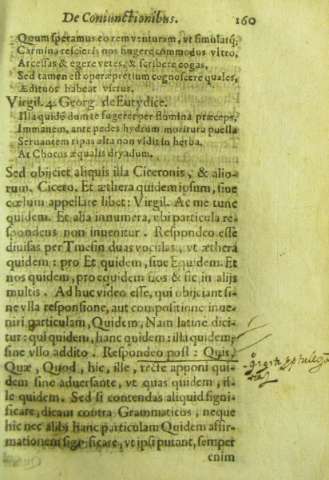 De Coniunctionibus. 160
Quum speramus eo rem venturam, vt simulatq;
Carmina rescieris nos fingere commodus vltro,
Arcessas & egere vetes, & scribere cogas,
Sed tamen est operæpretium cognoscere quales,
Ædituos habeat virtus.
Virgil. 4. Georg. de Eurydice.
Illa quidē dum te fugeret per flumina præceps,
Immanem, ante pedes hydrum moritura puella
Seruantem ripas alta non vidit in herba.
At Chorus æqualis dryadum.
Sed obijciet aliquis illa Ciceronis, & alio-
rum. Cicero. Et æthera quidem ipsum, siue
cœlum appellare libet: Virgil. Ac me tunc
quidem. Et alia innumera, vbi particula re-
spondens non inuenitur. Respondeo esse
diuisas per Tmesin duas voculas, vt æthera
quidem: pro Et quidem, siue Equidem. Et
nos quidem, pro equidem nos & sic in alijs
multis. Ad huc video esse, qui obijctant si-
ne vlla responsione, aut compositione inue-
niri particulam, Quidem, Nam latine dici-
tur: qui quidem, hanc quidem: illa quidem,
sine vllo addito. Respondeo post: Quis,
Quæ, Quod, hic, ille, recte apponi qui-
dem sine aduersante, vt quas quidem, il-
le quidem. Sed si contendas aliquid signi-
ficare, dicam contra Grammaticos, neque
hic nec alibi hanc particulam Quidem affir-
mationem significare, vt ipsi putant, semper
enim